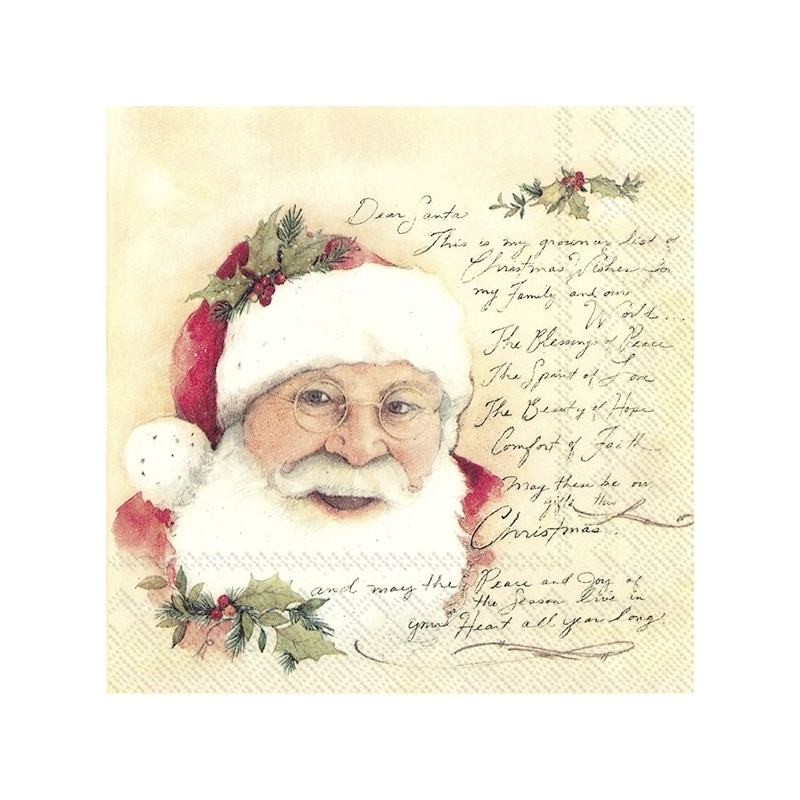 Dear Santa
This is my grownup list of
Christmas Wishes for
my Family and our
World...
The Blessings of Peace
The Spirit of Love
The Beauty of Hope
Comfort of Faith
May these be our
gifts this
Christmas.
and may the Peace and Joy of
the Season live in
your Heart all year long.